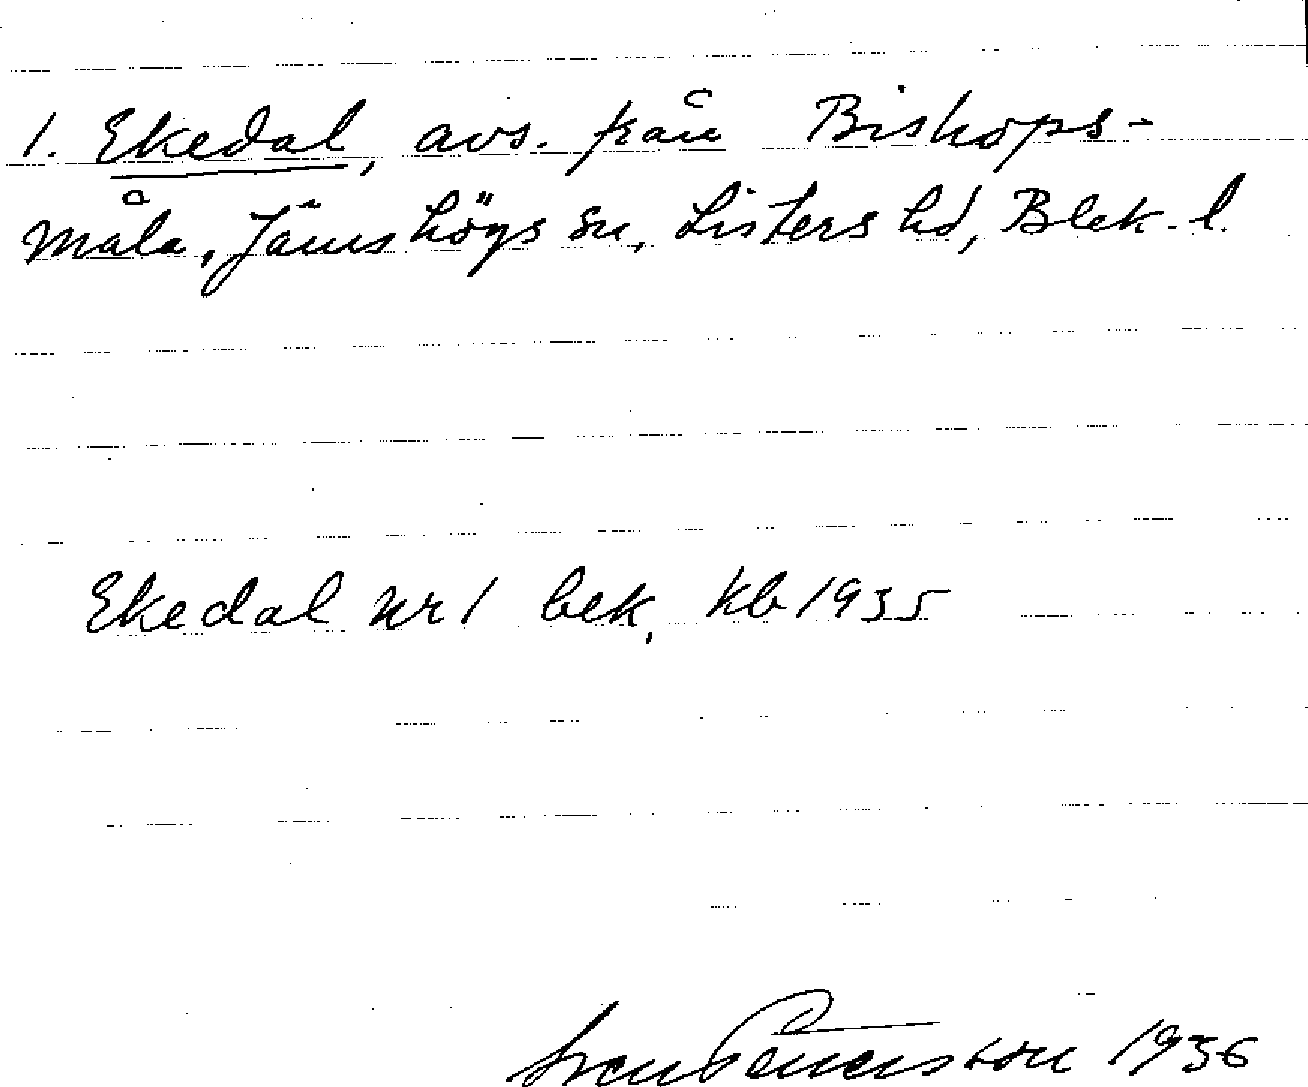 1. Ekedal, avs. från Biskops-
måla, Jämshögs sn, Listers hd, Blek. l.
Ekedal nr 1 bek. kb 1935
Sven Petersson 1936